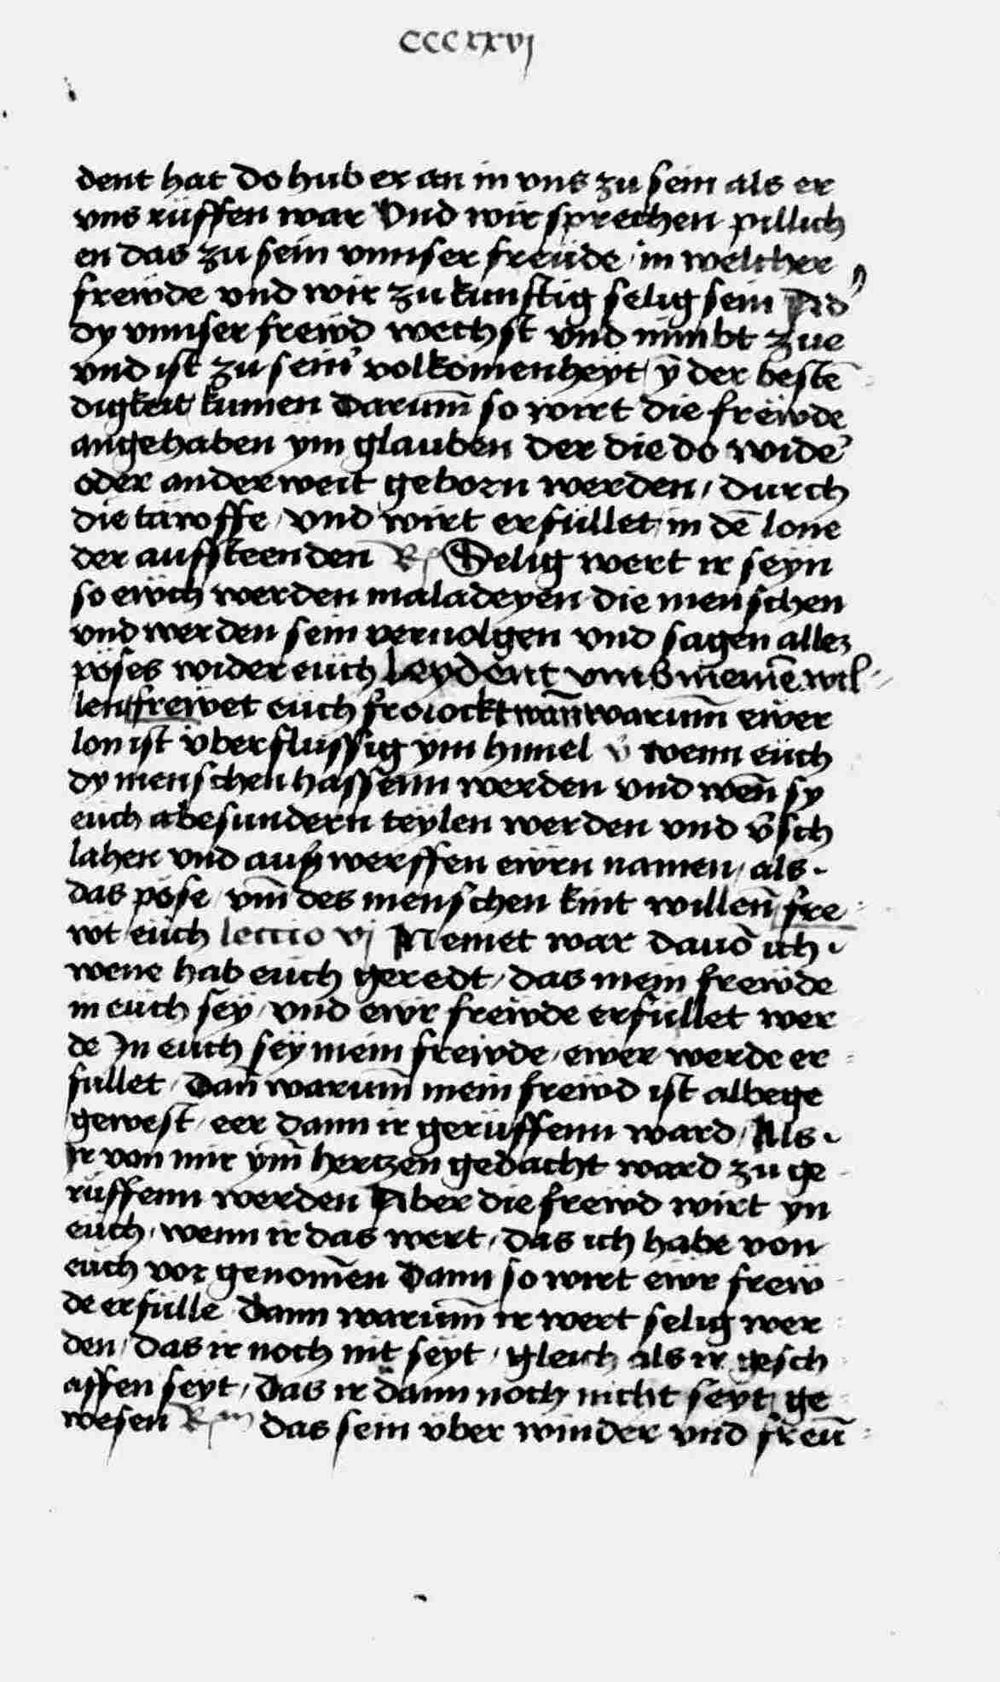 cccxxvj
dent hat Do hub er an in vns zu sein als er
vns rüffen war Vnd wir sprechen pillich
en das zu sein vnnser freüde / in welcher
frewde vnd wir zu kunftig selig sein
dy vnnser frewd wechst vnd nimbt zue
vnd ist zu seinr volkomenheyt der bestē
digkeit kumen Darum̄ so wirt die frewde
angehaben ym glauben der die do wide
oder anderweit geborn werden / durch
die tawffe / vnd wirt erfüllet in dē lone
der aufsteenden R Selig wert ir seyn
so ewch werden maladeyen die menschen
vnd werden sein veruolgen vnd sagen allez
pöses wider euch Leydent vmb meinē wil
len frewet euch frolockt wan̄ warum̄ ewer
lon ist vberflüssig ym himel v̊ wenn euch
dy menschen hassenn werden vnd wen̄ sy
euch abesundern teylen werden vnd v̄sch
lahen vnd auß werffen ewrn namen / als
das pöse / vm̄ des menschen kint willen̄ fre
wt euch lectio vj Nemet war dauō ich
wene hab euch geredt / das mein frewde
in euch sey / vnd ewr frewde erfüllet wer
de In euch sey mein frewde / ewer werde er
füllet / Dan̄ warum̄ mein frewd ist albege
gewest / eer dann ir gerüffenn ward / Als
Ir von mir ym̄ hertzen gedacht ward zu ge
rüffenn werden Aber die frewd wirt yn
euch / wenn ir das wert / das ich habe von
euch vor genom̄en Dann so wirt ewr frew
de erfülle Dann warum̄ ir wert selig wer
den / das ir noch nit seyt / gleich als ir gesch
affen seyt / das ir dann noch nicht seyt ge
wesen R das sein vber winder vnd freu̅